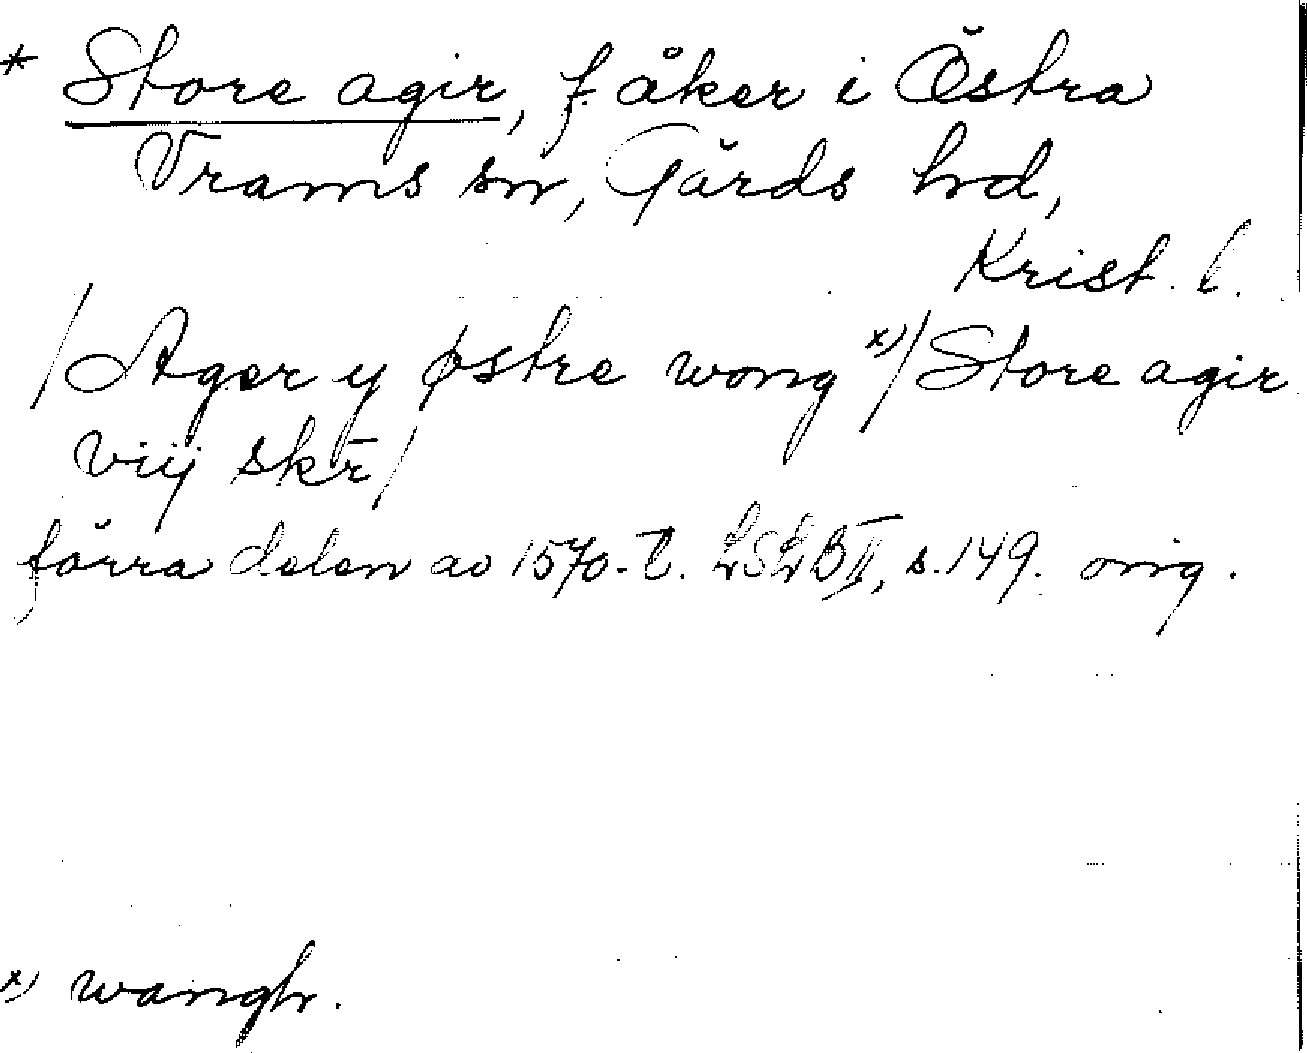 * Store agir, f. åker i Östra
Vrams sn, Gärds hd,
Krist. l.
/Ager y østre wong x)/ Store agir
viij skr̄/
förra delen av 1570-t. LSLB II, s. 149. orig.
x) wangh.